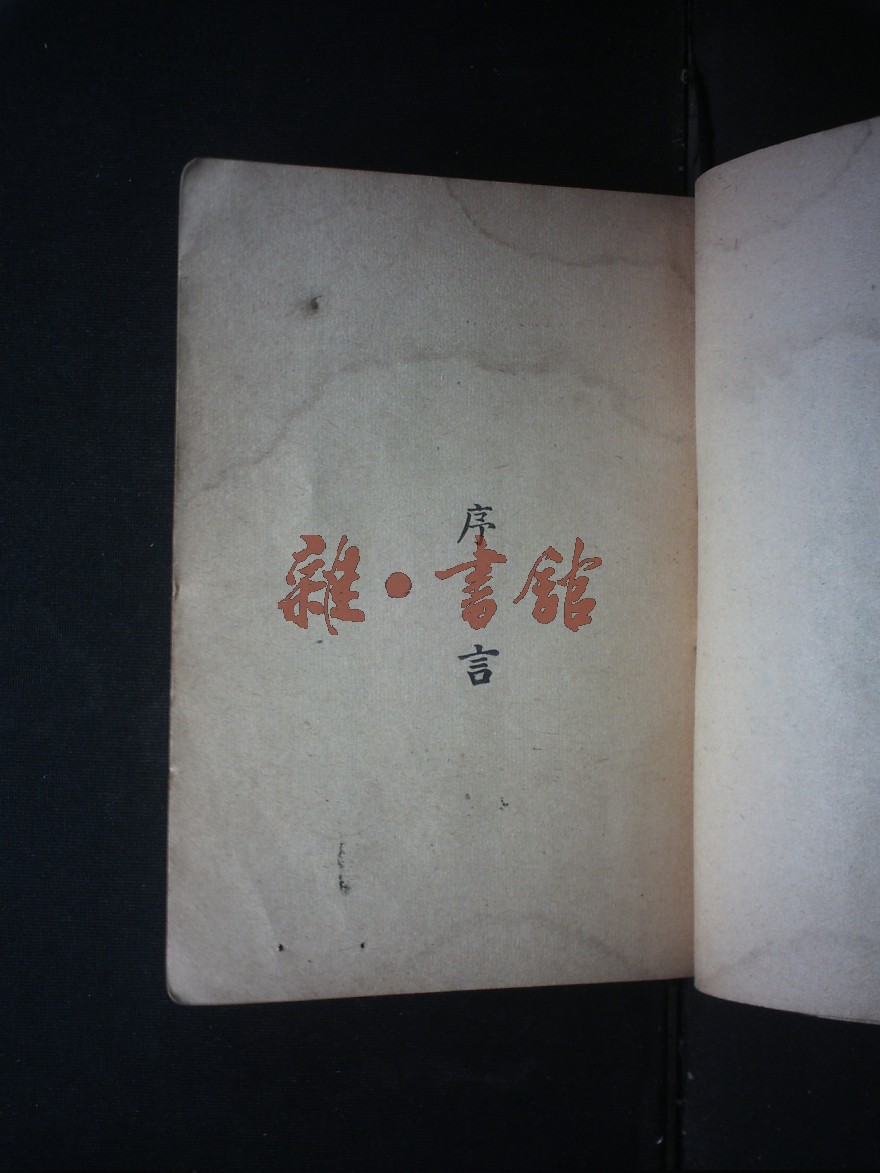 序言
雜·書館